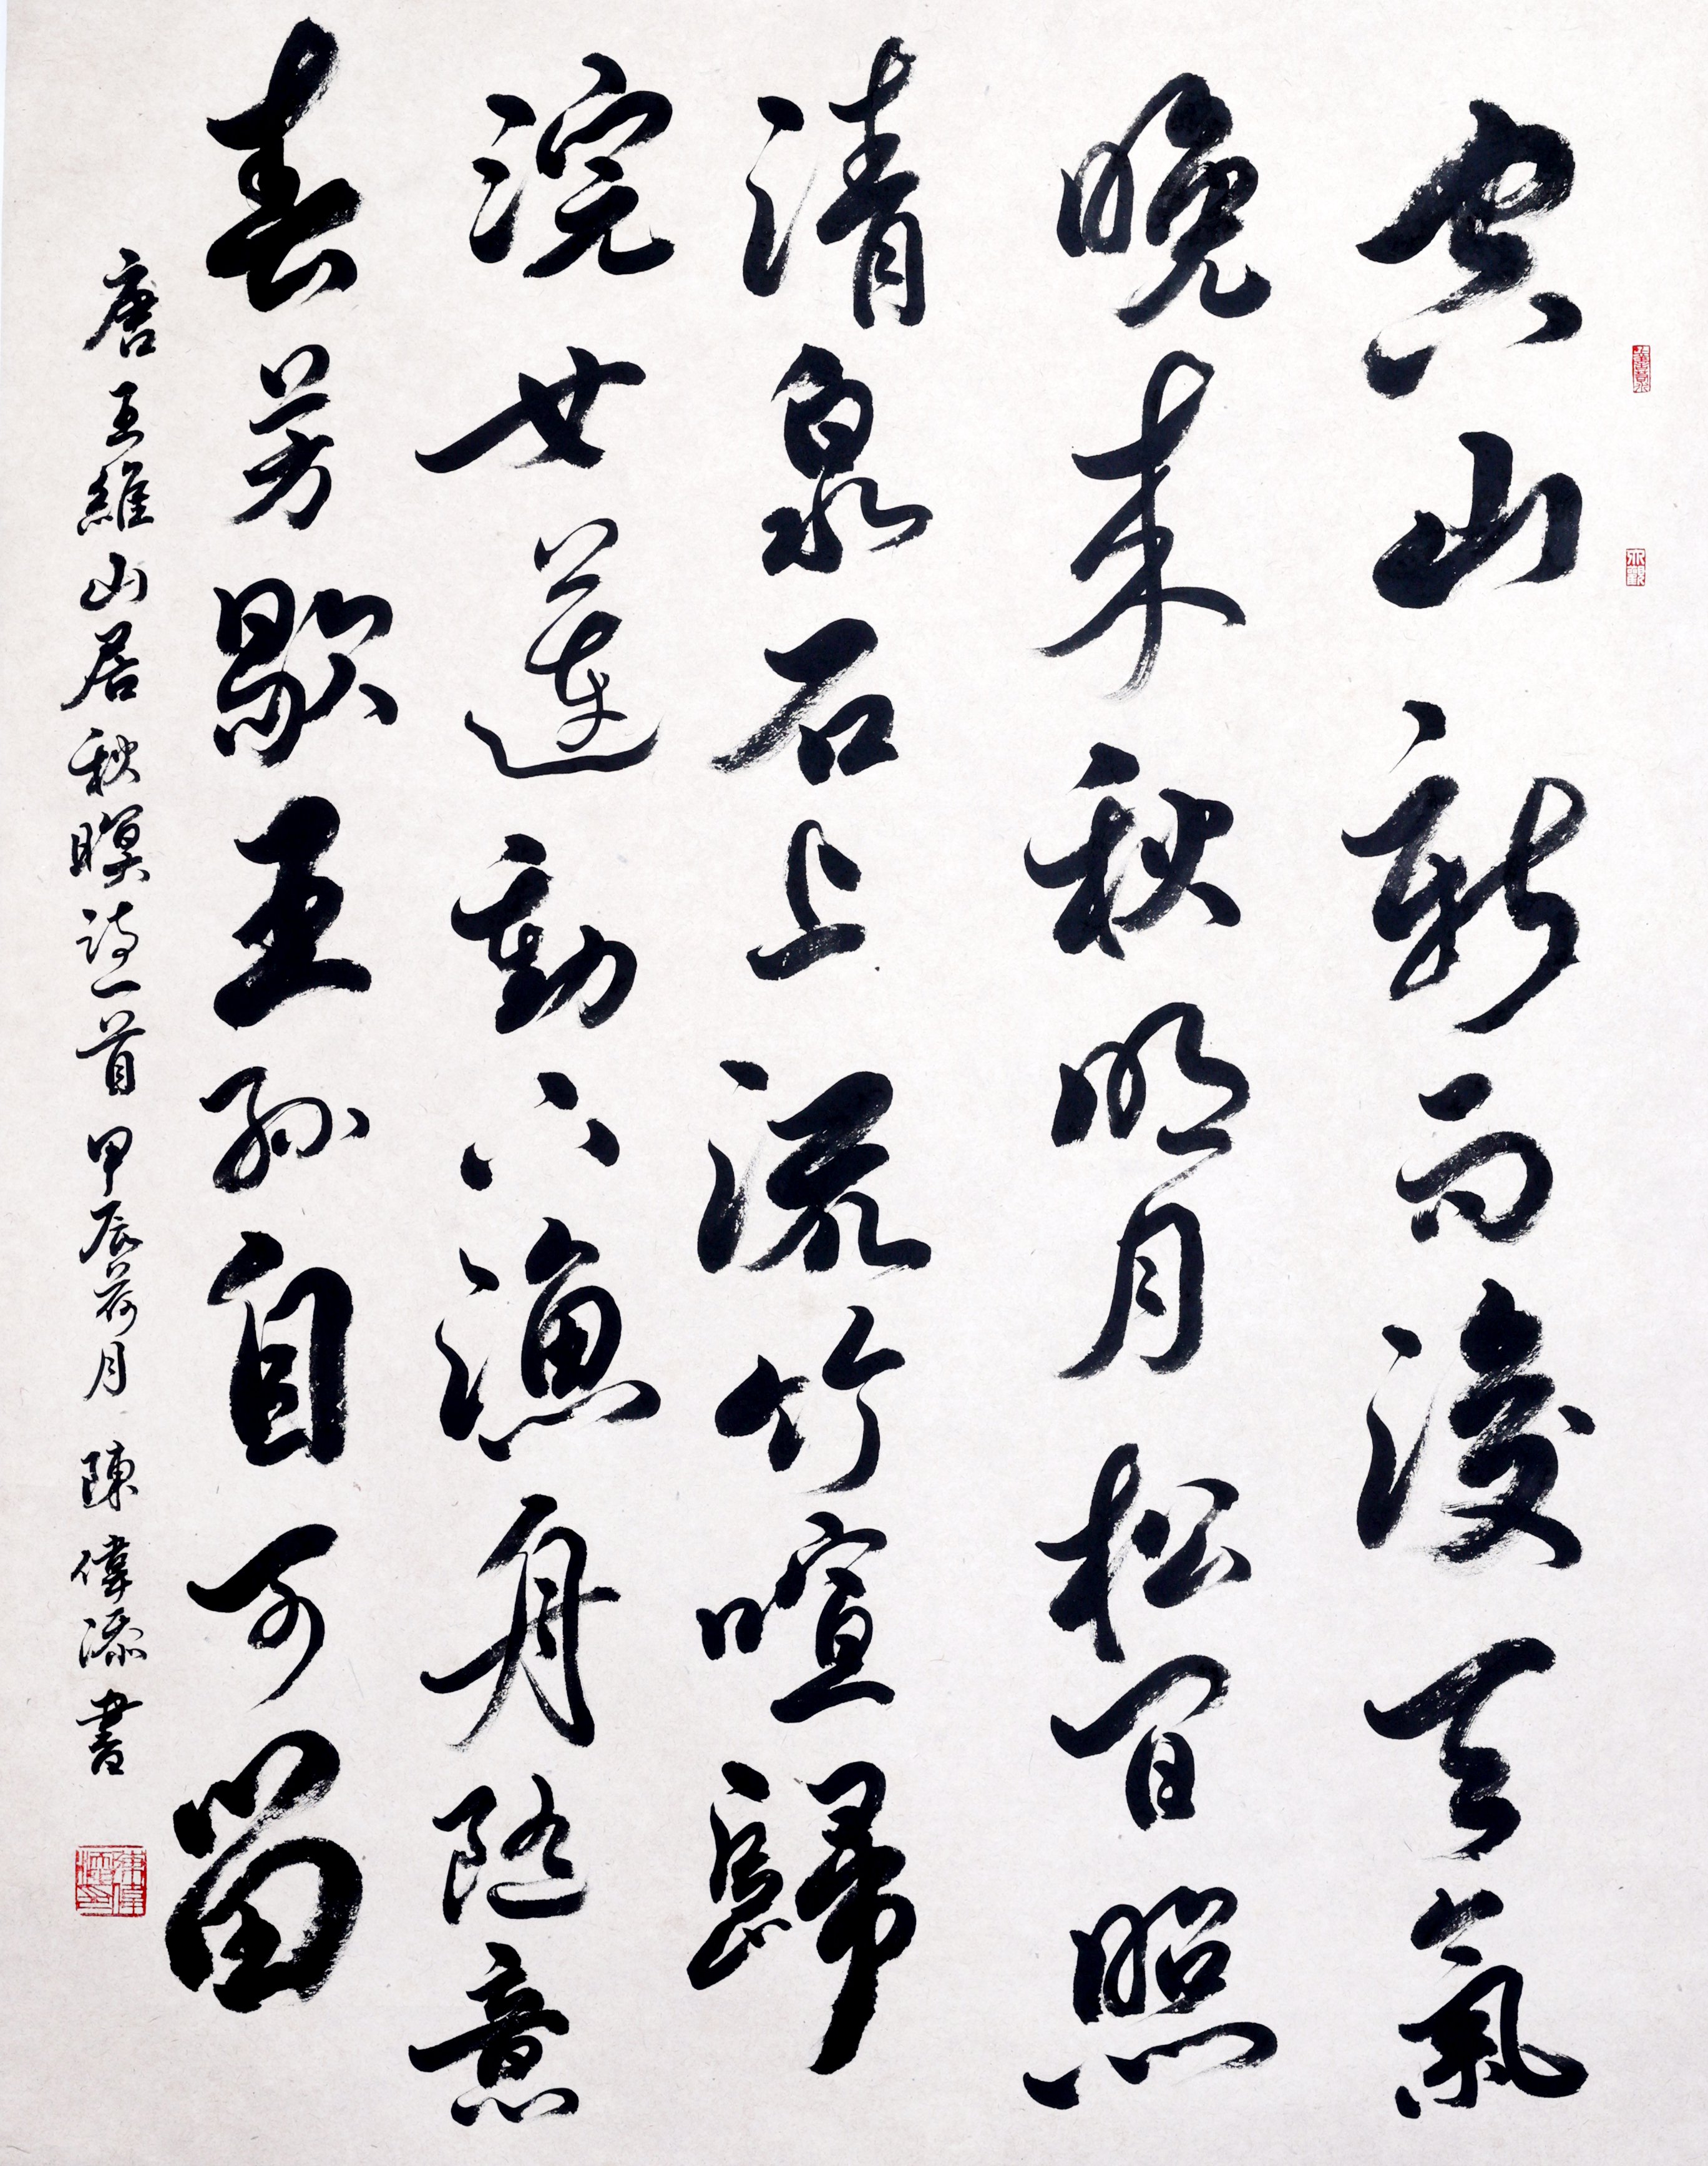 空山新雨後天氣
晚來秋明月松間照
清泉石上流竹喧歸
浣女蓮動下漁舟隨意
春芳歇王孫自可留
唐王維山居秋暝詩一首 甲辰荷月 陳偉添書